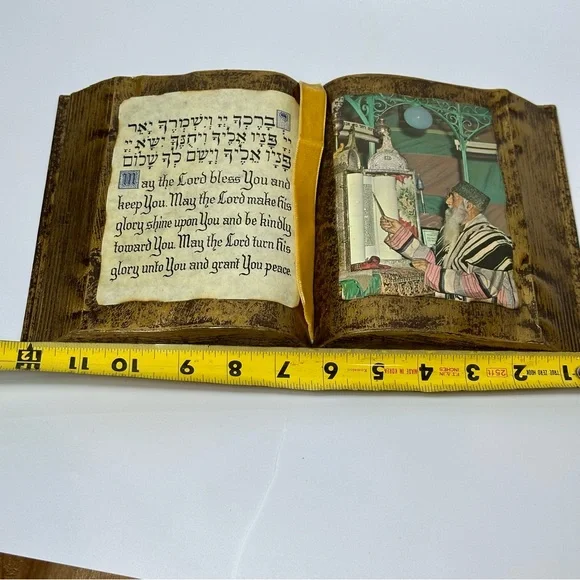 יְבָרֶכְךָ יְיָ וְיִשְׁמְרֶךָ יָאֵר
יְיָ פָּנָיו אֵלֶיךָ וִיחֻנֶּךָּ יִשָּׂא יְיָ
פָּנָיו אֵלֶיךָ וְיָשֵׂם לְךָ שָׁלוֹם
May the Lord bless You and
keep You. May the Lord make his
glory shine upon You and be kindly
toward You. May the Lord turn his
glory unto You and grant You peace.
12 11 10 9 8 7 6 5 MADE IN KOREA 4 INCHES 3 25ft 2 TRUE ZERO HOOK 1